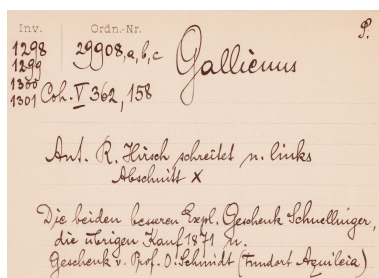 Inv. Ordn.-Nr. S.
1298 29908,a,b,c Gallienus
1299
1300
1301 Coh. V 362,158
Ant. R. Hirsch schreitet n. links
Abschnitt X
Die beiden besseren Expl. Geschenk Schnellinger,
die übrigen Kauf 1871 u.
Geschenk v. Prof. O. Schmidt (Fundort Aquileia)